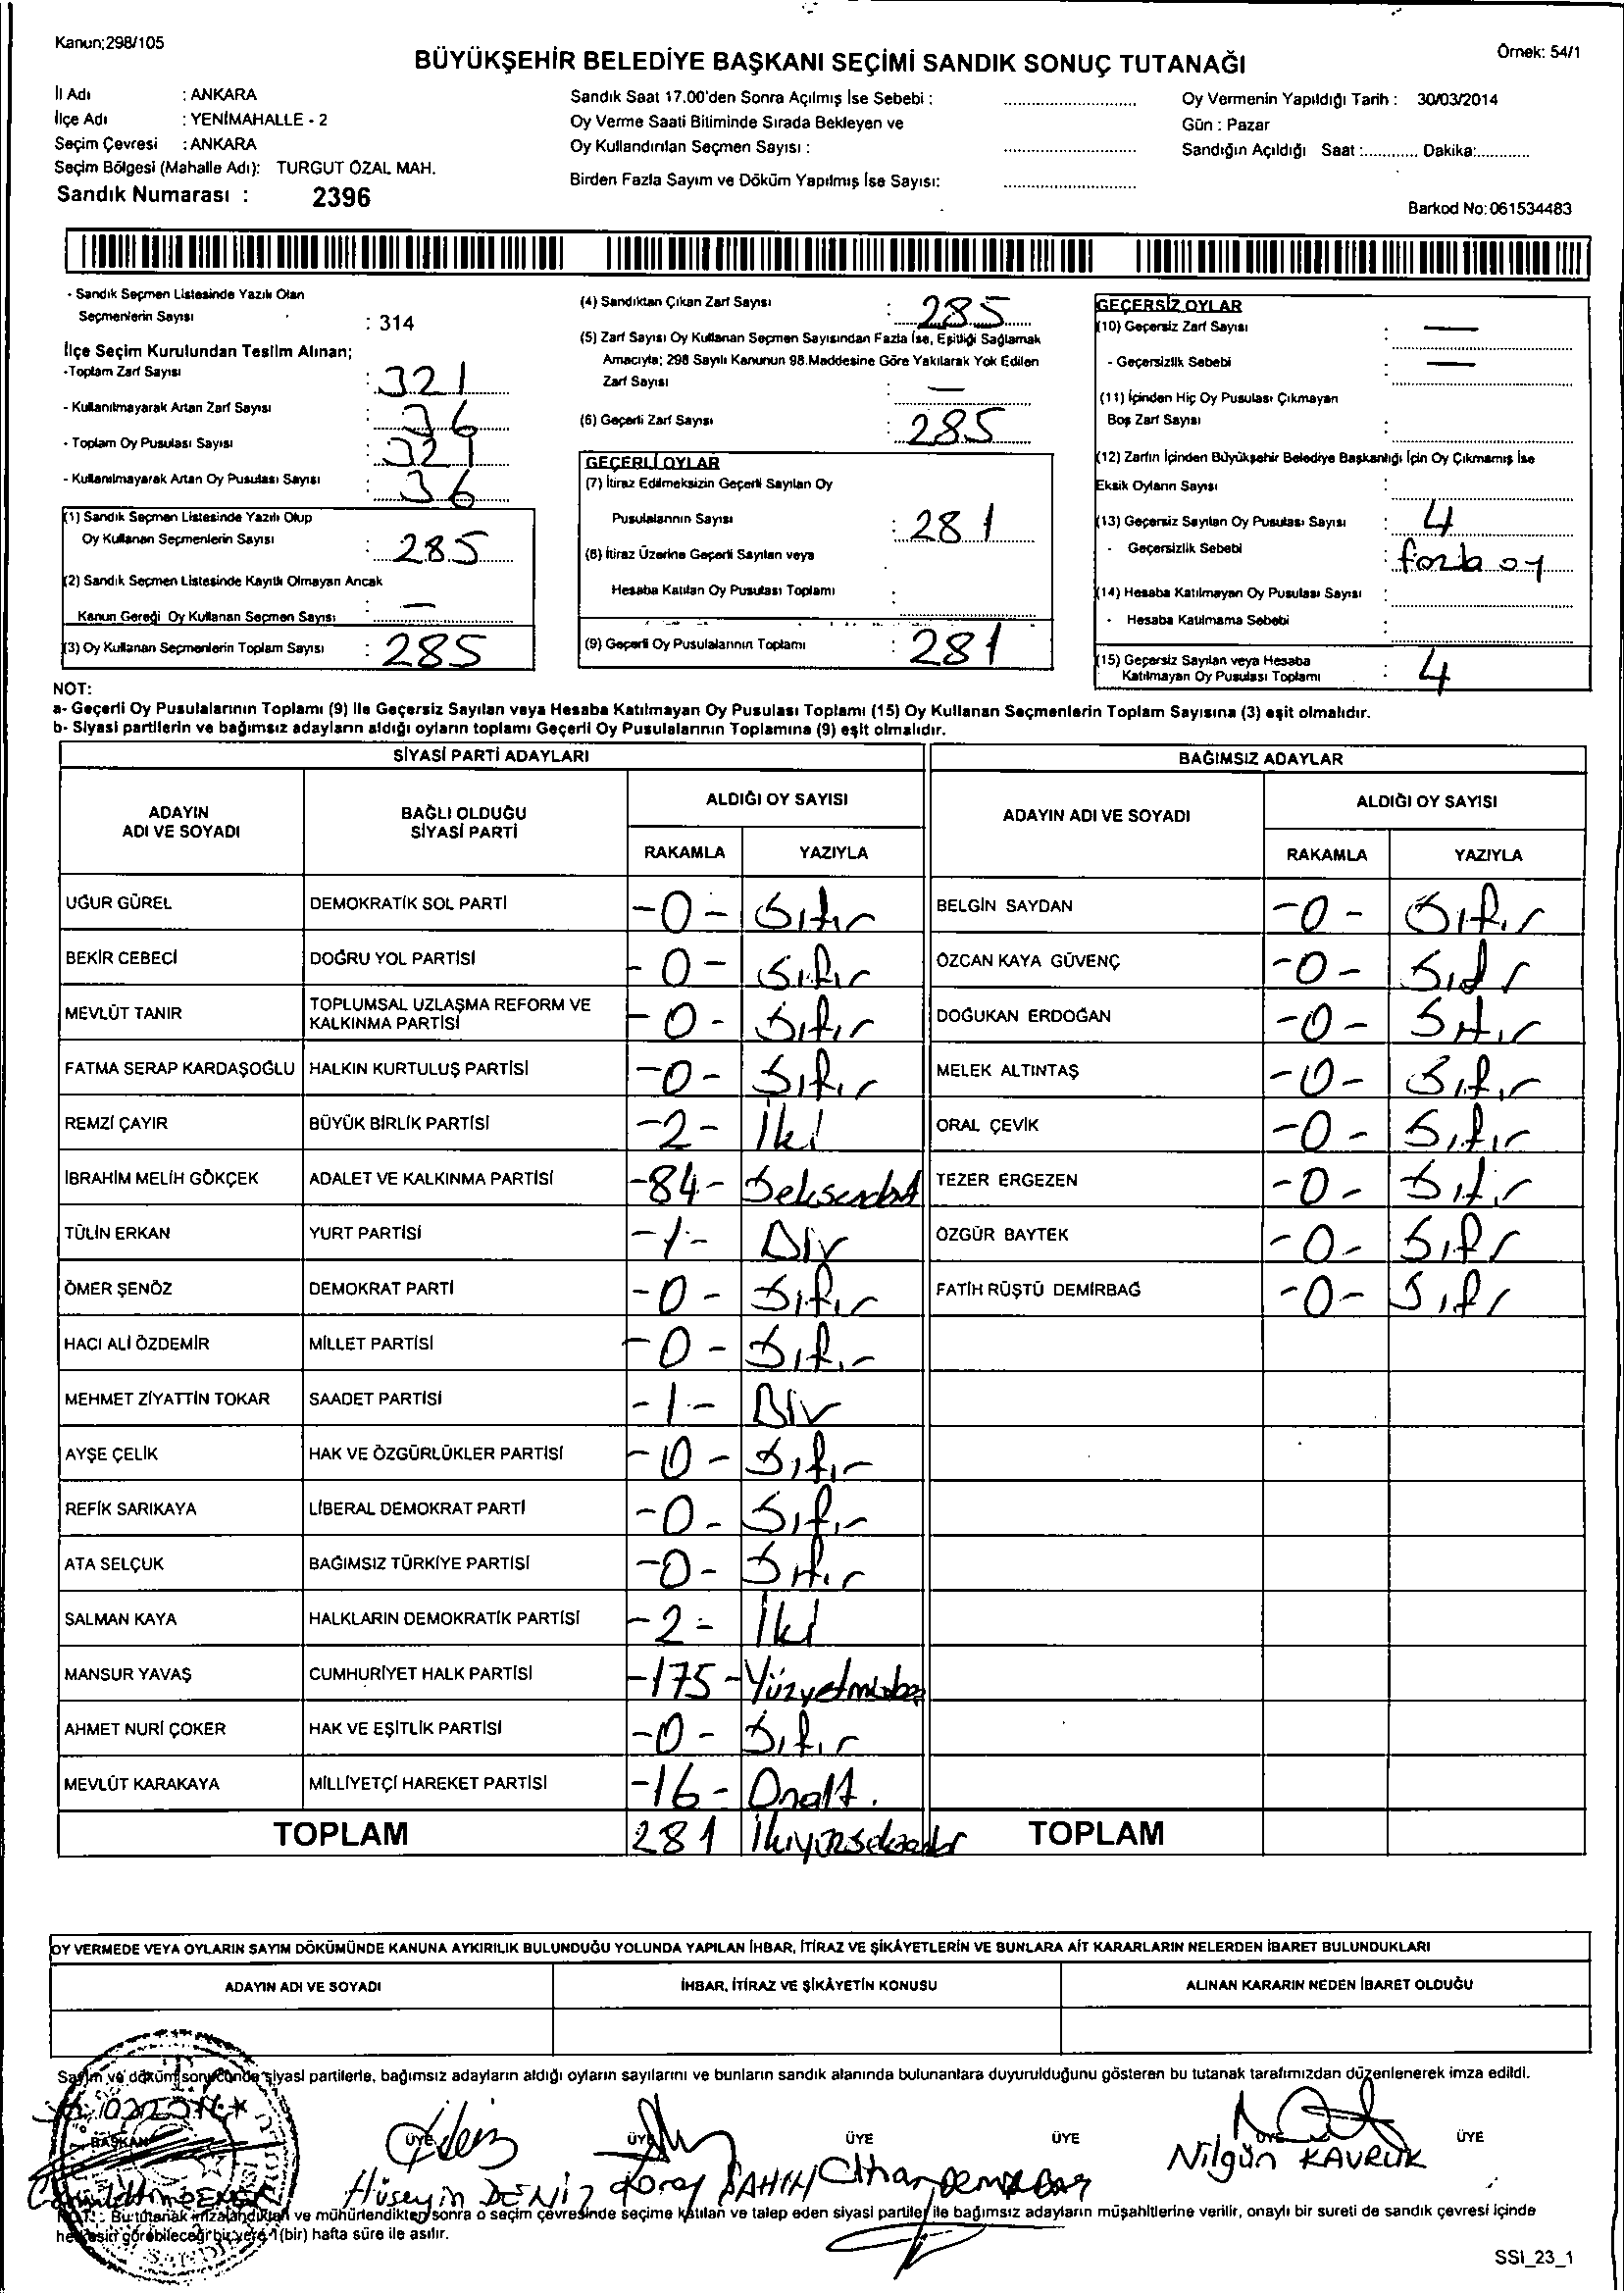 Kanun;298/105
Örnek: 54/1
BÜYÜKŞEHİR BELEDİYE BAŞKANI SEÇİMİ SANDIK SONUÇ TUTANAĞI
İl Adı : ANKARA
İlçe Adı : YENİMAHALLE - 2
Seçim Çevresi : ANKARA
Seçim Bölgesi (Mahalle Adı): TURGUT ÖZAL MAH.
Sandık Numarası : 2396
Sandık Saat 17.00'den Sonra Açılmış İse Sebebi :
Oy Verme Saati Bitiminde Sırada Bekleyen ve
Oy Kullandırılan Seçmen Sayısı :
Birden Fazla Sayım ve Döküm Yapılmış İse Sayısı:
Oy Vermenin Yapıldığı Tarih : 30/03/2014
Gün : Pazar
Sandığın Açıldığı Saat :............ Dakika:............
Barkod No:061534483
- Sandık Seçmen Listesinde Yazılı Olan
Seçmenlerin Sayısı : 314
İlçe Seçim Kurulundan Teslim Alınan;
-Toplam Zarf Sayısı : 321
- Kullanılmayarak Artan Zarf Sayısı : 36
- Toplam Oy Pusulası Sayısı : 321
- Kullanılmayarak Artan Oy Pusulası Sayısı : 36
(1) Sandık Seçmen Listesinde Yazılı Olup
Oy Kullanan Seçmenlerin Sayısı : 285
(2) Sandık Seçmen Listesinde Kayıtlı Olmayan Ancak
Kanun Gereği Oy Kullanan Seçmen Sayısı : —
(3) Oy Kullanan Seçmenlerin Toplam Sayısı : 285
(4) Sandıktan Çıkan Zarf Sayısı : 285
(5) Zarf Sayısı Oy Kullanan Seçmen Sayısından Fazla İse, Eşitliği Sağlamak
Amacıyla; 298 Sayılı Kanunun 98.Maddesine Göre Yakılarak Yok Edilen
Zarf Sayısı : —
(6) Geçerli Zarf Sayısı : 285
GEÇERLİ OYLAR
(7) İtiraz Edilmeksizin Geçerli Sayılan Oy
Pusulalarının Sayısı : 281
(8) İtiraz Üzerine Geçerli Sayılan veya
Hesaba Katılan Oy Pusulası Toplamı :
(9) Geçerli Oy Pusulalarının Toplamı : 281
GEÇERSİZ OYLAR
(10) Geçersiz Zarf Sayısı : —
- Geçersizlik Sebebi : —
(11) İçinden Hiç Oy Pusulası Çıkmayan
Boş Zarf Sayısı :
(12) Zarfın İçinden Büyükşehir Belediye Başkanlığı İçin Oy Çıkmamış İse
Eksik Oyların Sayısı :
(13) Geçersiz Sayılan Oy Pusulası Sayısı : 4
- Geçersizlik Sebebi : fazla oy
(14) Hesaba Katılmayan Oy Pusulası Sayısı :
- Hesaba Katılmama Sebebi :
(15) Geçersiz Sayılan veya Hesaba
Katılmayan Oy Pusulası Toplamı : 4
NOT:
a- Geçerli Oy Pusulalarının Toplamı (9) İle Geçersiz Sayılan veya Hesaba Katılmayan Oy Pusulası Toplamı (15) Oy Kullanan Seçmenlerin Toplam Sayısına (3) eşit olmalıdır.
b- Siyasi partilerin ve bağımsız adayların aldığı oyların toplamı Geçerli Oy Pusulalarının Toplamına (9) eşit olmalıdır.
SİYASİ PARTİ ADAYLARI
ADAYIN ADI VE SOYADI
BAĞLI OLDUĞU SİYASİ PARTİ
ALDIĞI OY SAYISI
RAKAMLA YAZIYLA
UĞUR GÜREL DEMOKRATİK SOL PARTİ -0- Sıfır
BEKİR CEBECİ DOĞRU YOL PARTİSİ -0- Sıfır
MEVLÜT TANIR TOPLUMSAL UZLAŞMA REFORM VE KALKINMA PARTİSİ -0- Sıfır
FATMA SERAP KARDAŞOĞLU HALKIN KURTULUŞ PARTİSİ -0- Sıfır
REMZİ ÇAYIR BÜYÜK BİRLİK PARTİSİ -2- İki
İBRAHİM MELİH GÖKÇEK ADALET VE KALKINMA PARTİSİ -84- Seksendört
TÜLİN ERKAN YURT PARTİSİ -1- Bir
ÖMER ŞENÖZ DEMOKRAT PARTİ -0- Sıfır
HACI ALİ ÖZDEMİR MİLLET PARTİSİ -0- Sıfır
MEHMET ZİYATTİN TOKAR SAADET PARTİSİ -1- Bir
AYŞE ÇELİK HAK VE ÖZGÜRLÜKLER PARTİSİ -0- Sıfır
REFİK SARIKAYA LİBERAL DEMOKRAT PARTİ -0- Sıfır
ATA SELÇUK BAĞIMSIZ TÜRKİYE PARTİSİ -0- Sıfır
SALMAN KAYA HALKLARIN DEMOKRATİK PARTİSİ -2- İki
MANSUR YAVAŞ CUMHURİYET HALK PARTİSİ -175- Yüzyetmişbeş
AHMET NURİ ÇOKER HAK VE EŞİTLİK PARTİSİ -0- Sıfır
MEVLÜT KARAKAYA MİLLİYETÇİ HAREKET PARTİSİ -16- Onaltı.
TOPLAM 281
BAĞIMSIZ ADAYLAR
ADAYIN ADI VE SOYADI
ALDIĞI OY SAYISI
RAKAMLA YAZIYLA
BELGİN SAYDAN -0- Sıfır
ÖZCAN KAYA GÜVENÇ -0- Sıfır
DOĞUKAN ERDOĞAN -0- Sıfır
MELEK ALTINTAŞ -0- Sıfır
ORAL ÇEVİK -0- Sıfır
TEZER ERGEZEN -0- Sıfır
ÖZGÜR BAYTEK -0- Sıfır
FATİH RÜŞTÜ DEMİRBAĞ -0- Sıfır
TOPLAM
OY VERMEDE VEYA OYLARIN SAYIM DÖKÜMÜNDE KANUNA AYKIRILIK BULUNDUĞU YOLUNDA YAPILAN İHBAR, İTİRAZ VE ŞİKÂYETLERİN VE BUNLARA AİT KARARLARIN NELERDEN İBARET BULUNDUKLARI
ADAYIN ADI VE SOYADI
İHBAR, İTİRAZ VE ŞİKÂYETİN KONUSU
ALINAN KARARIN NEDEN İBARET OLDUĞU
Sayım ve döküm sonucunda siyasi partilerle, bağımsız adayların aldığı oyların sayılarını ve bunların sandık alanında bulunanlara duyurulduğunu gösteren bu tutanak tarafımızdan düzenlenerek imza edildi.
BAŞKAN ÜYE ÜYE ÜYE ÜYE ÜYE ÜYE
Hüseyin DENİZ Koray ŞAHİN Nilgün KAVRUK
NOT: Bu tutanak imzalandıktan ve mühürlendikten sonra o seçim çevresinde seçime katılan ve talep eden siyasi partiler ile bağımsız adayların müşahitlerine verilir, onaylı bir sureti de sandık çevresi içinde
herkesin görebileceği bir yere 1(bir) hafta süre ile asılır.
SSI_23_1